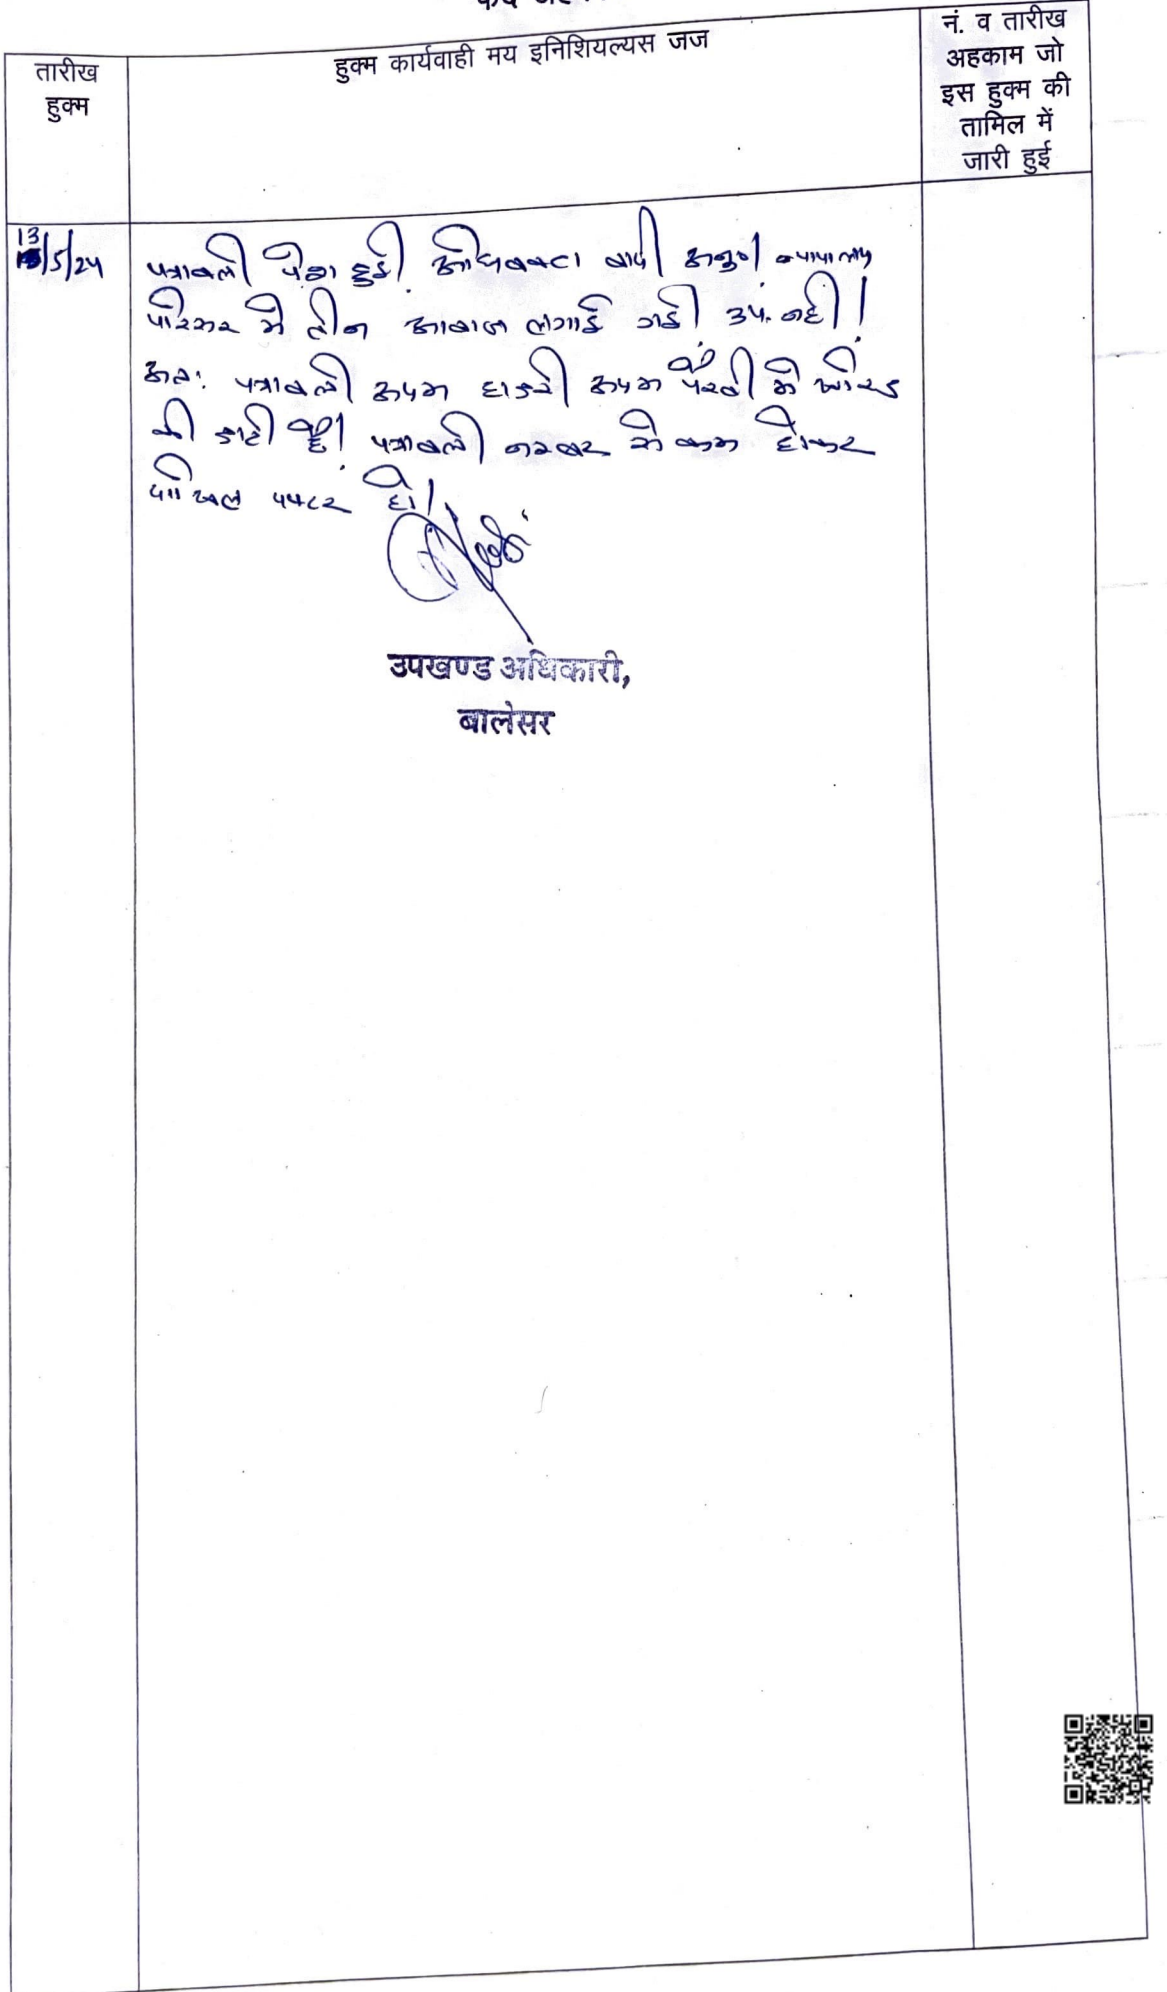 तारीख
हुक्म
हुक्म कार्यवाही मय इनिशियल्यस जज
नं. व तारीख
अहकाम जो
इस हुक्म की
तामिल में
जारी हुई
13/5/24
पत्रावली पेश हुई अधिवक्ता वादी अनु० न्यायालय
परिसर मे तीन आवाज लगाई गई उप. नही।
अतः पत्रावली अदम हाजरी अदम पैरवी मे खारिज
की जाती है। पत्रावली नम्बर से कम होकर
दाखिल दफ्तर हो।
उपखण्ड अधिकारी,
बालेसर